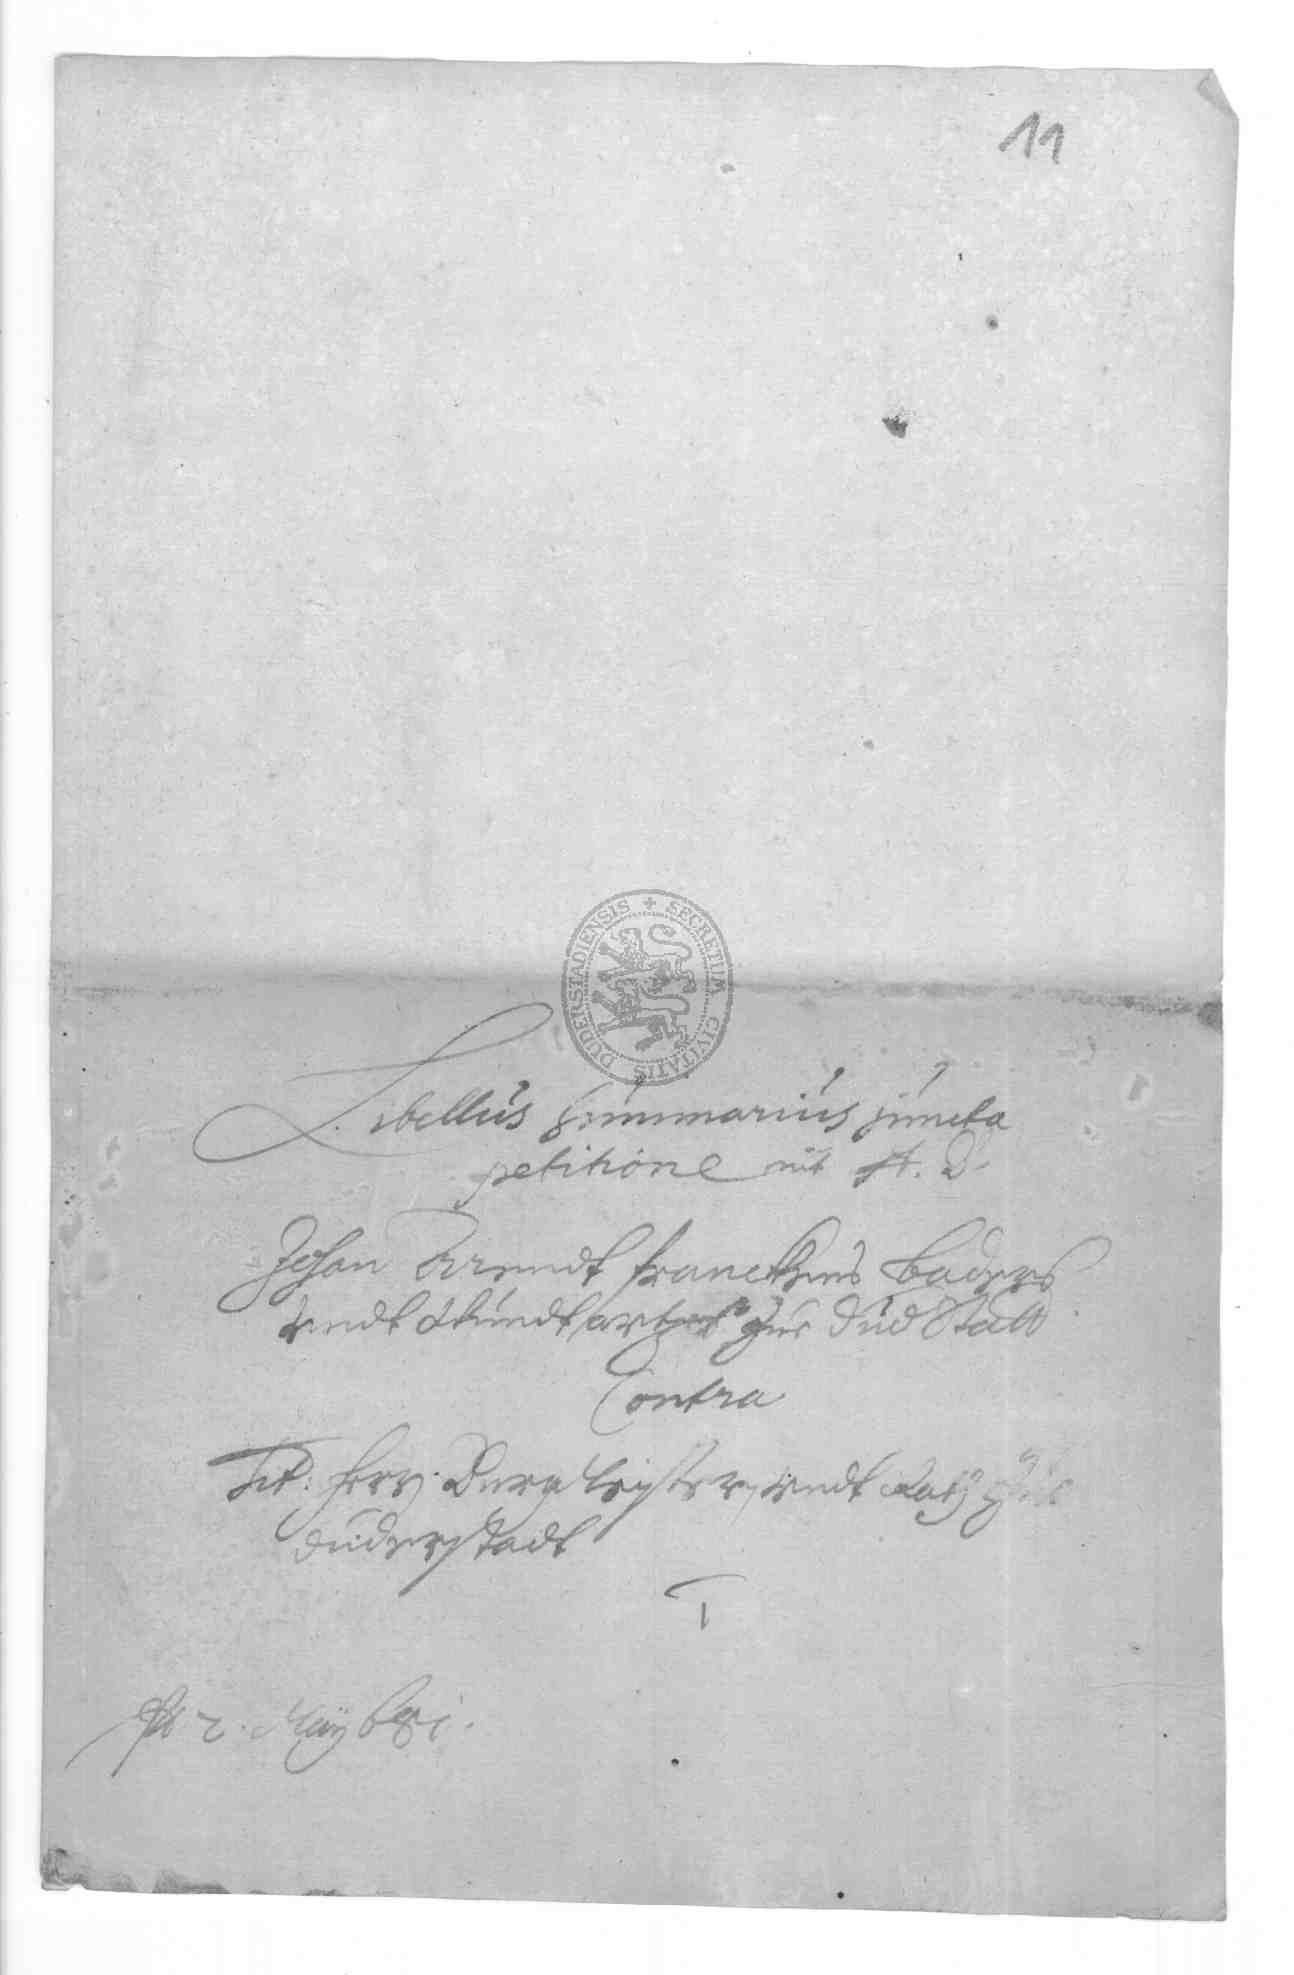 11
SECRETUM CIVITATIS DUDERSTADIENSIS
Libellus summarius juncta
petitione mit A. D.
Johan Arendt Franckens Baders
vndt Wundtartzes zue Dud Stadt
Contra
Tit: Herr Burgmeister vndt Rath
Duderstadt
May